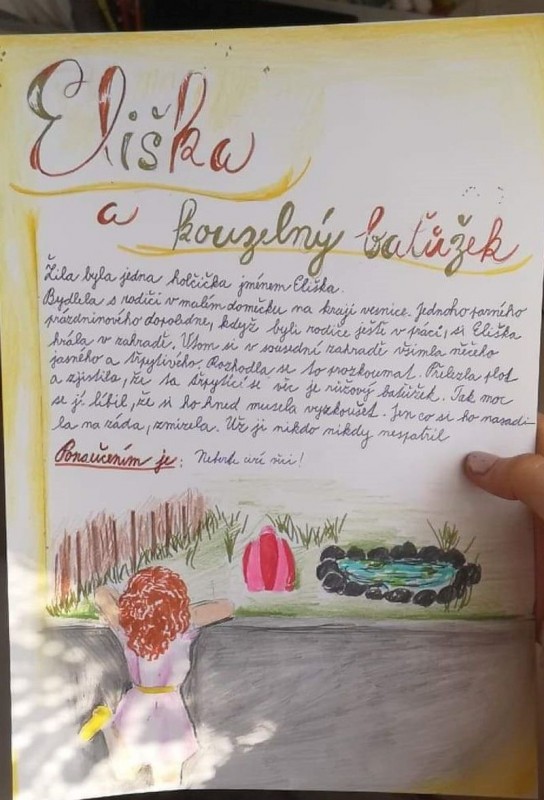 Eliška
a kouzelný baťůžek
Žila byla jedna holčička jménem Eliška.
Bydlela s rodiči v malém domečku na kraji vesnice. Jednoho parného
prázdninového dopoledne, když byli rodiče ještě v práci, si Eliška
hrála v zahradě. Vtom si v sousední zahradě všimla něčeho
jasného a třpytivého. Rozhodla se to prozkoumat. Přelezla plot
a zjistila, že ta třpytící se věc je růžový batůžek. Tak moc
se jí líbil, že si ho hned musela vyzkoušet. Jen co si ho nasadi-
la na záda, zmizela. Už ji nikdo nikdy nespatřil
Ponaučením je: Neber cizí věci!